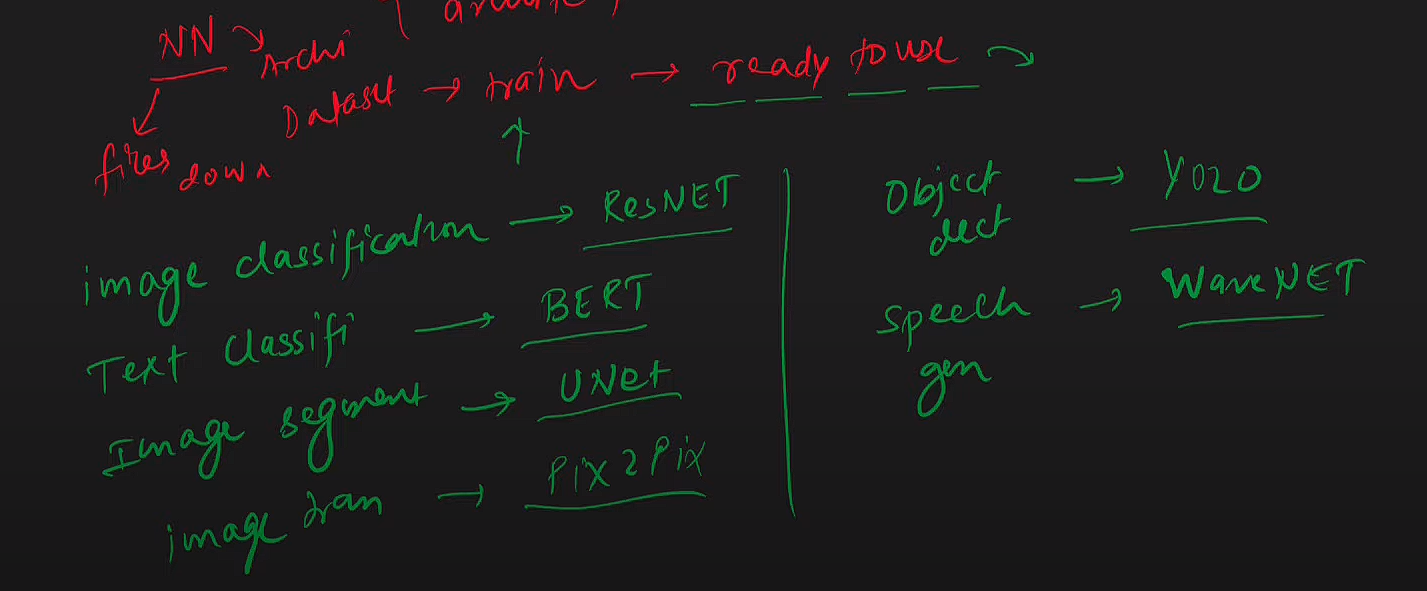 NN → Archi
Dataset → train → ready to use →
fires down
image classification → ResNET
Text classifi → BERT
Image segment → UNet
image tran → Pix2Pix
Object
dect → YOLO
Speech → WaveNET
gen